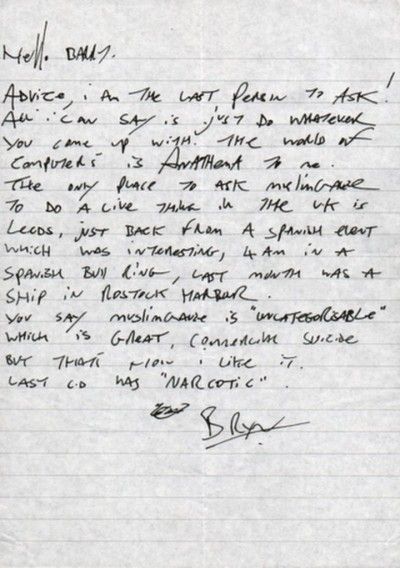 Hello BARRY.
ADVICE, i AM THE LAST PERSON TO ASK!
All i CAN SAY is JUST DO WHATEVER
YOU COME UP WITH. THE WORLD OF
COMPUTERS iS ANATHEMA TO me.
THE ONLY PLACE TO ASK MUSLIMGAUZE
TO DO A LIVE THING IN THE UK iS
LEEDS, JUST BACK FROM A SPANISH EVENT
WHICH WAS INTERESTING, 4 AM IN A
SPANISH BULL RING, LAST MONTH WAS A
SHIP IN ROSTOCK HARBOUR.
YOU SAY MUSLIMGAUZE iS "UNCATEGORISABLE"
WHICH iS GREAT, COMMERCIAL SUICIDE
BUT THAT'S HOW i LIKE iT.
LAST CD WAS "NARCOTIC".
BRYN